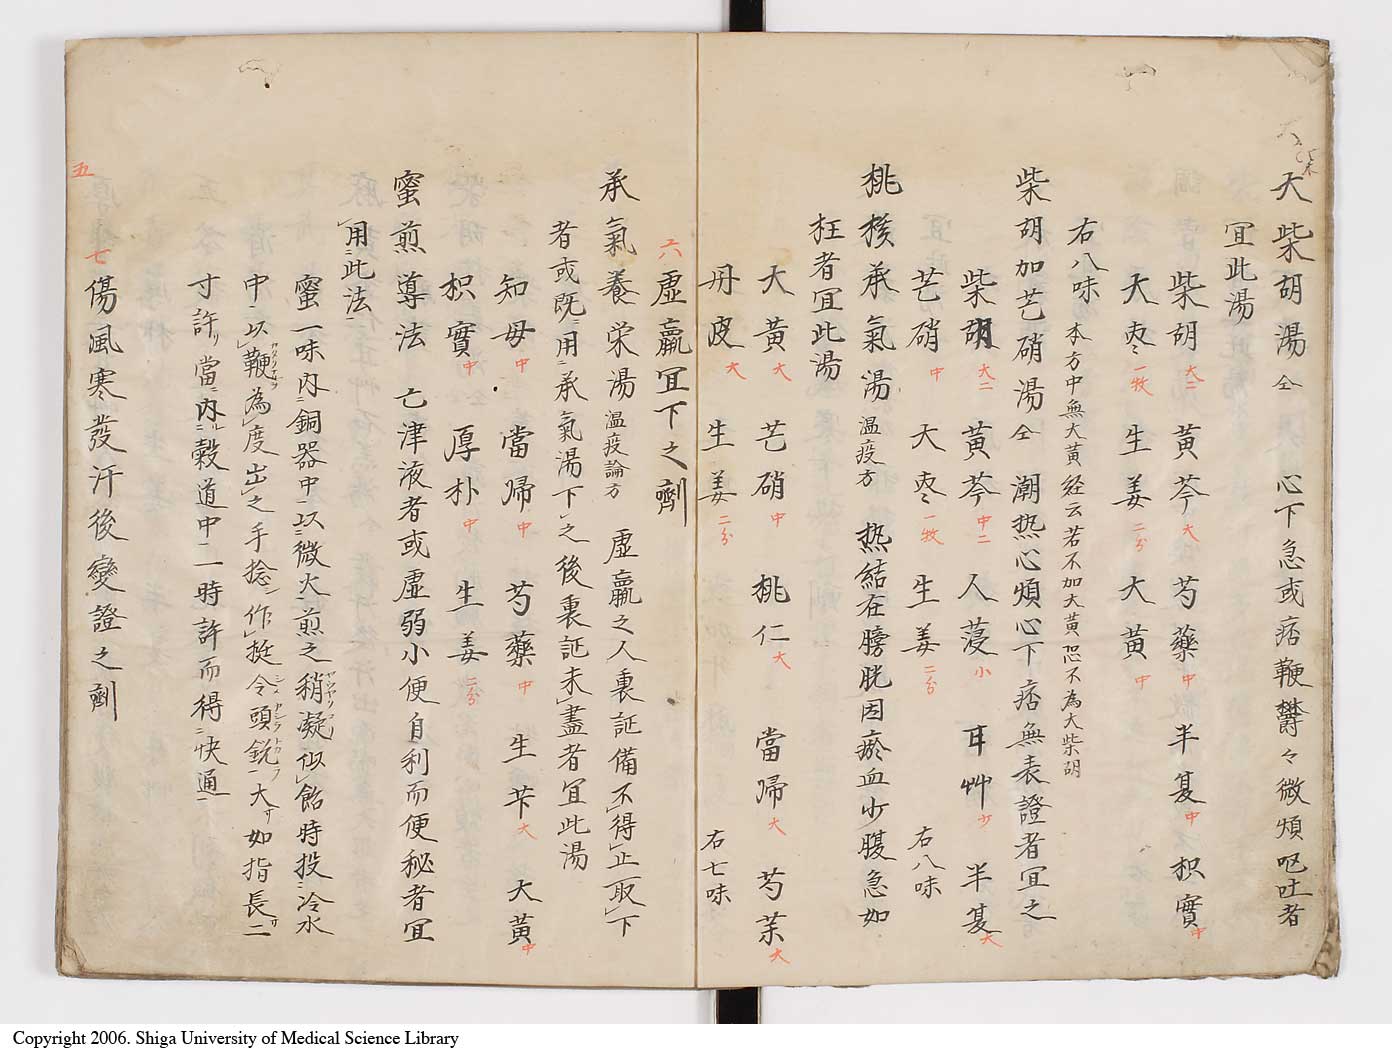 大柴胡湯 仝 心下急或痞鞕欝々微煩呕吐者
宜此湯
柴胡大二 黄芩大 芍藥中 半夏中 枳實中
大枣一牧 生姜二分 大黄中
右八味 本方中無大黄経云若不加大黄恐不為大柴胡
柴胡加芒硝湯 仝 潮热心煩心下痞無表證者宜之
柴胡大二 黄芩中二 人葠小 耳艸少 半夏大
芒硝中 大枣一牧 生姜二分 右八味
桃核承氣湯 温疫方 热結在膀胱因瘀血少腹急如
狂者宜此湯
大黄大 芒硝中 桃仁大 當帰大 芍茱大
丹皮大 生姜二分 右七味
六 虚羸冝下之劑
承氣養栄湯 温疫論方 虚羸之人裏証備不得止取下
者或既ニ用ニ承氣湯下之後裏証未盡者宜此湯
知母中 當帰中 芍藥中 生芐大 大黄中
枳實中 厚朴中 生姜二分
蜜煎導法 亡津液者或虚弱小便自利而便秘者宜
用ニ此法
蜜一味内ニ銅器中以ニ微火煎之稍凝似飴時投ニ冷水
中以鞕為度出之手捻シ作挺令頭鋭一大サ如指長サ二
寸許リ當ニ内ニ穀道中一時許而得ニ快通
七 傷風寒發汗後變證之劑
五
Copyright 2006. Shiga University of Medical Science Library